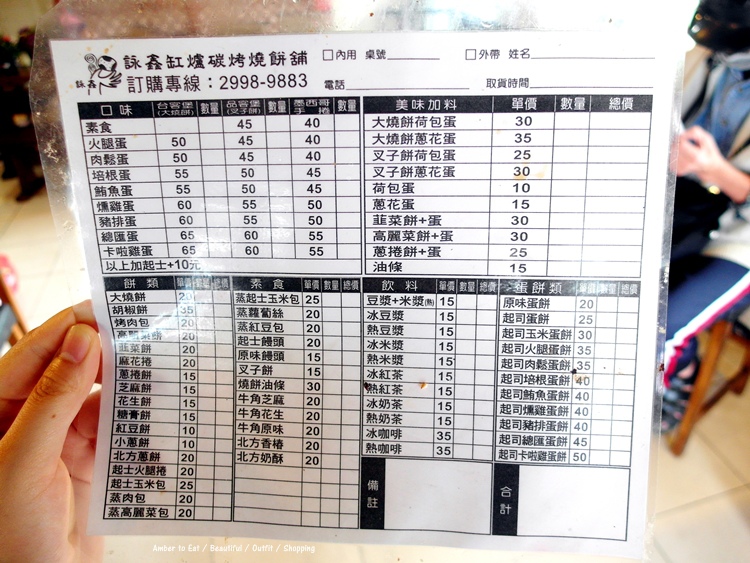 詠鑫
詠鑫缸爐碳烤燒餅舖
訂購專線：2998-9883
□內用 桌號
□外帶 姓名
電話
取貨時間
口味 台客堡(大燒餅) 數量 品客堡(叉子餅) 數量 墨西哥手捲 數量
素食 45 40
火腿蛋 50 45 40
肉鬆蛋 50 45 40
培根蛋 55 50 45
鮪魚蛋 55 50 45
燻雞蛋 60 55 50
豬排蛋 60 55 50
總匯蛋 65 60 55
卡啦雞蛋 65 60 55
以上加起士+10元
美味加料 單價 數量 總價
大燒餅荷包蛋 30
大燒餅蔥花蛋 35
叉子餅荷包蛋 25
叉子餅蔥花蛋 30
荷包蛋 10
蔥花蛋 15
韮菜餅+蛋 30
高麗菜餅+蛋 30
蔥捲餅+蛋 25
油條 15
餅類 單價 數量 總價
大燒餅 20
胡椒餅 35
烤肉包 20
高麗菜餅 20
韮菜餅 20
麻花捲 20
蔥捲餅 15
芝麻餅 15
花生餅 15
糖膏餅 15
紅豆餅 10
小蔥餅 10
北方蔥餅 20
起士火腿捲 20
起士玉米包 25
蒸肉包 20
蒸高麗菜包 20
素食 單價 數量 總價
蒸起士玉米包 25
蒸蘿蔔絲 20
蒸紅豆包 20
起士饅頭 20
原味饅頭 15
叉子餅 15
燒餅油條 30
牛角芝麻 20
牛角花生 20
牛角原味 20
北方香椿 20
北方奶酥 20
飲料 單價 數量 總價
豆漿+米漿(熱) 15
冰豆漿 15
熱豆漿 15
冰米漿 15
熱米漿 15
冰紅茶 15
熱紅茶 15
冰奶茶 15
熱奶茶 15
冰咖啡 35
熱咖啡 35
備註
蛋餅類 單價 數量 總價
原味蛋餅 20
起司蛋餅 25
起司玉米蛋餅 30
起司火腿蛋餅 35
起司肉鬆蛋餅 35
起司培根蛋餅 40
起司鮪魚蛋餅 40
起司燻雞蛋餅 40
起司豬排蛋餅 40
起司總匯蛋餅 45
起司卡啦雞蛋餅 50
合計
Amber to Eat / Beautiful / Outfit / Chopping